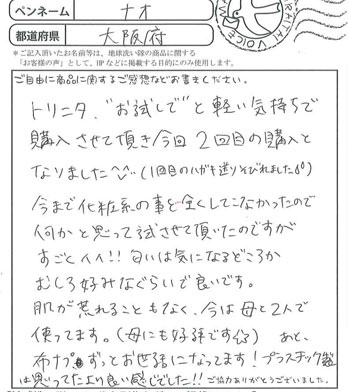 ペンネーム ナオ
都道府県 大阪府
＊ご記入頂いたお名前等は、地球洗い隊の商品に関する
「お客様の声」として、HPなどに掲載する目的にのみ使用します。
ご自由に商品に関するご感想などお書きください。
トリニタ、"お試しで"と軽い気持ちで
購入させて頂き今回2回目の購入と
なりました^^(1回目のハガキ送りそびれました)
今まで化粧系の事を全くしてこなかったので
何かと思って試させて頂いたのですが
すごくイイ!!匂いは気になるどころか
むしろ好みなぐらいで良いです。
肌が荒れることもなく、今は母と2人で
使ってます。(母にも好評です) あと、
布ナプずっとお世話になってます!プラスチック製
は思ってたより良い感じでした!!ご協力ありがとうございました。